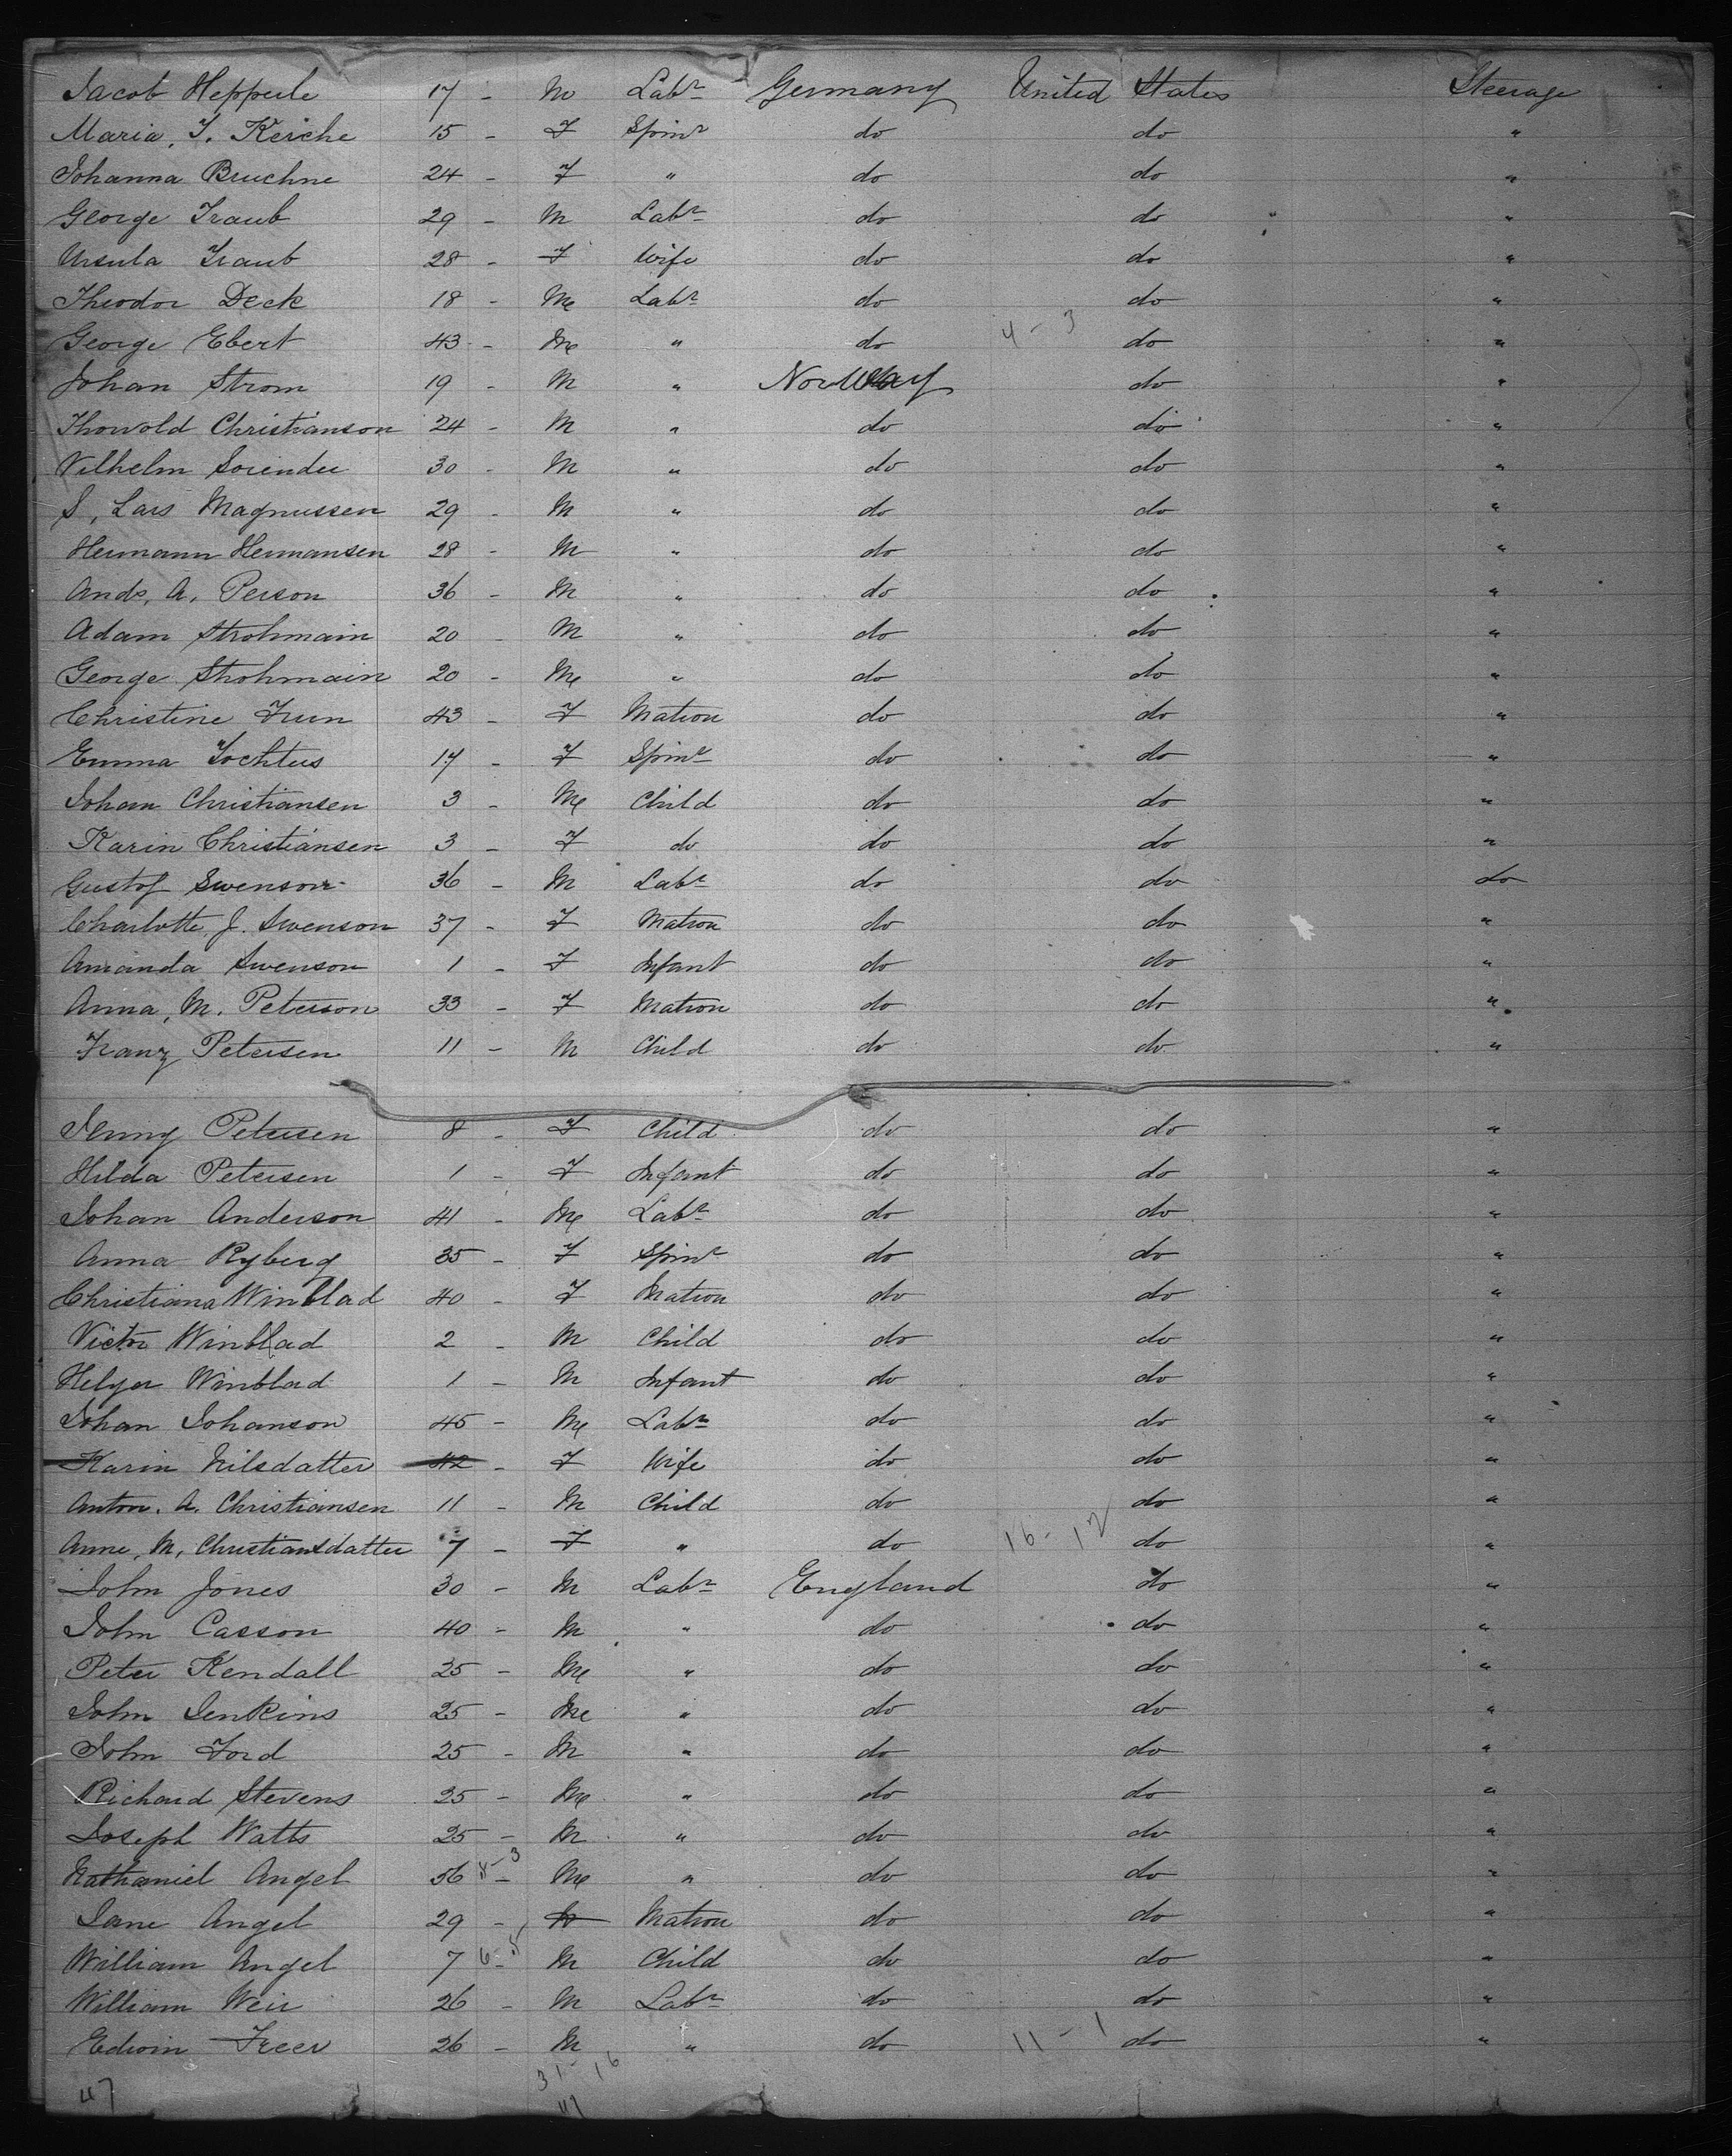 Jacob Hepperle 17 - M Labr Germany United States Steerage
Maria, T. Keiche 15 - F Spinr do do "
Johanna Bruchne 24 - F " do do "
George Traub 29 - M Labr do do "
Ursula Traub 28 - F Wife do do "
Theodor Deck 18 - M Labr do do "
George Ebert 43 - M " do 4 - 3 do "
Johan Strom 19 - M " Norway do "
Thorvold Christianson 24 - M " do do "
Vilhelm Sorender 30 - M " do do "
S, Lars Magnussen 29 - M " do do "
Hermann Hermansen 28 - M " do do "
Ands, A. Person 36 - M " do do "
Adam Strohmain 20 - M " do do "
George Strohmain 20 - M " do do "
Christine Frun 43 - F Matron do do "
Emma Tochtus 17 - F Spinr do do "
Johan Christiansen 3 - M Child do do "
Karin Christiansen 3 - F do do do "
Gustof Swenson 36 - M Labr do do do
Charlotte J. Swenson 37 - F Matron do do "
Amanda Swenson 1 - F Infant do do "
Anna, M. Peterson 33 - F Matron do do "
Franz Petersen 11 - M Child do do "
Jenny Petersen 8 - F Child do do "
Hilda Petersen 1 - F Infant do do "
Johan Anderson 41 - M Labr do do "
Anna Ryberg 35 - F Spinr do do "
Christiana Winblad 40 - F Matron do do "
Victor Winblad 2 - M Child do do "
Helger Winblad 1 - M Infant do do "
Johan Johanson 45 - M Labr do do "
Karin Nilsdatter 42 - F Wife do do "
Anton. A. Christiansen 11 - M Child do do "
Anne, M, Christiansdatter 7 - F " do 16 - 12 do "
John Jones 30 - M Labr England do "
John Casson 40 - M " do do "
Peter Kendall 25 - M " do do "
John Jenkins 25 - M " do do "
John Ford 25 - M " do do "
Richard Stevens 25 - M " do do "
Joseph Watts 25 - M " do do "
Nathaniel Angel 56 - M " do do "
Jane Angel 29 - Matron do do "
William Angel 7 - M Child do do "
William Weir 26 - M Labr do do "
Edwin Freer 26 - M " do 11 - 1 do "
31 - 16
47 47